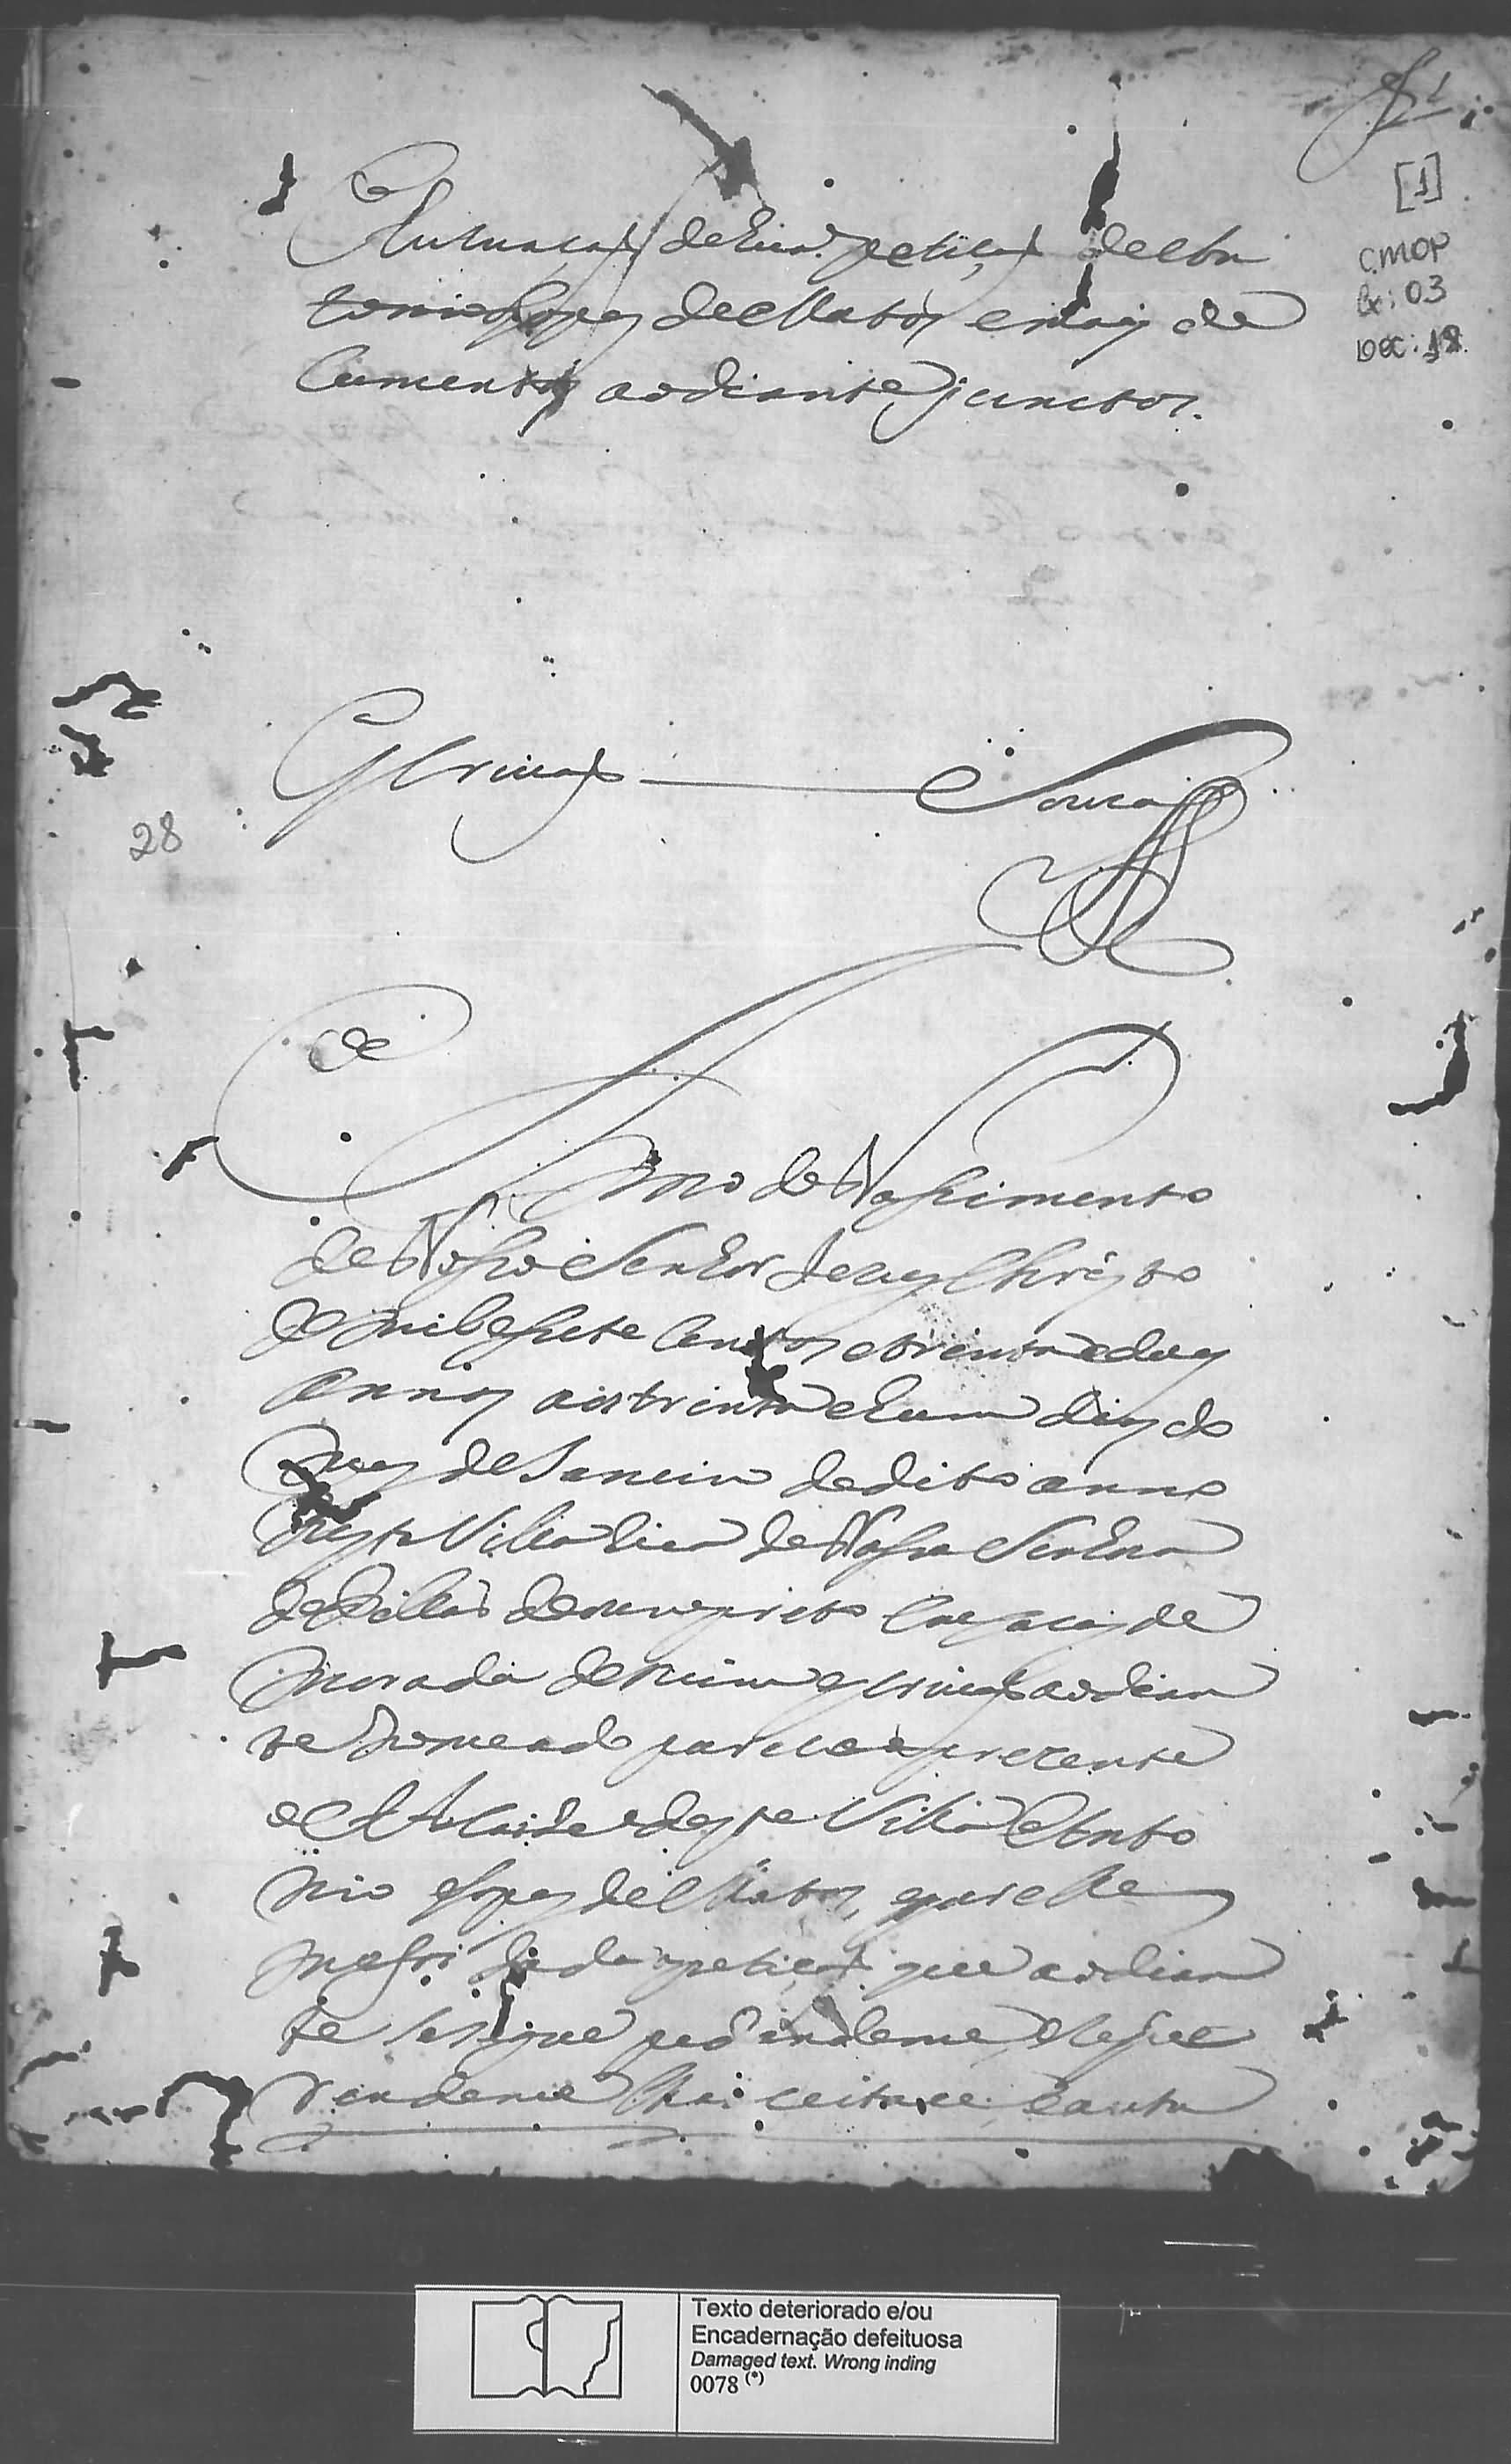 fl 1
[1]
CMOP
Cx: 03
Doc: 18
Autuacaõ de hua petiçaõ de An
tonio Lopes de Mattos e mais do
cumentos ao diante junctos.
Escrivaõ Souza
28
Anno do Nassimento
de Nosso Senhor Jezus Christo
de mil e sette centos e trinta e dous
annos aos trinta e hum dias do
mes de Janeiro do dito anno
nesta Villa Rica de Nossa Senhora
do Pillar do ouro preto em cazas de
morada de mim escrivaõ ao dian
te nomeado pareceo prezente
o Alcaide desta Villa Anto
nio Lopes de Mattos, e por elle
me foi dada a petiçaõ que ao dian
te se segue pedindome e reque
rendome lha aceitace e autu
Texto deteriorado e/ou
Encadernação defeituosa
Damaged text. Wrong inding
0078 (*)